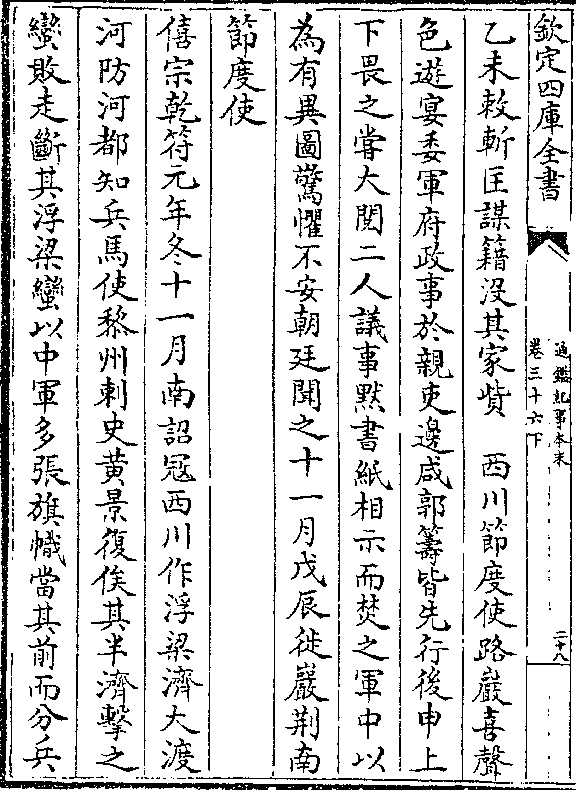 欽定四庫全書
通鑑紀事本末
卷三十六下
二十八
乙未敕斬匡謀籍沒其家貲　西川節度使路巖喜聲
色遊宴委軍府政事於親吏邊咸郭籌皆先行後申上
下畏之嘗大閱二人議事默書紙相示而焚之軍中以
為有異圖驚懼不安朝廷聞之十一月戊辰徙巖荆南
節度使
僖宗乾符元年冬十一月南詔寇西川作浮梁濟大渡
河防河都知兵馬使黎州刺史黃景復俟其半濟擊之
蠻敗走斷其浮梁蠻以中軍多張旗幟當其前而分兵